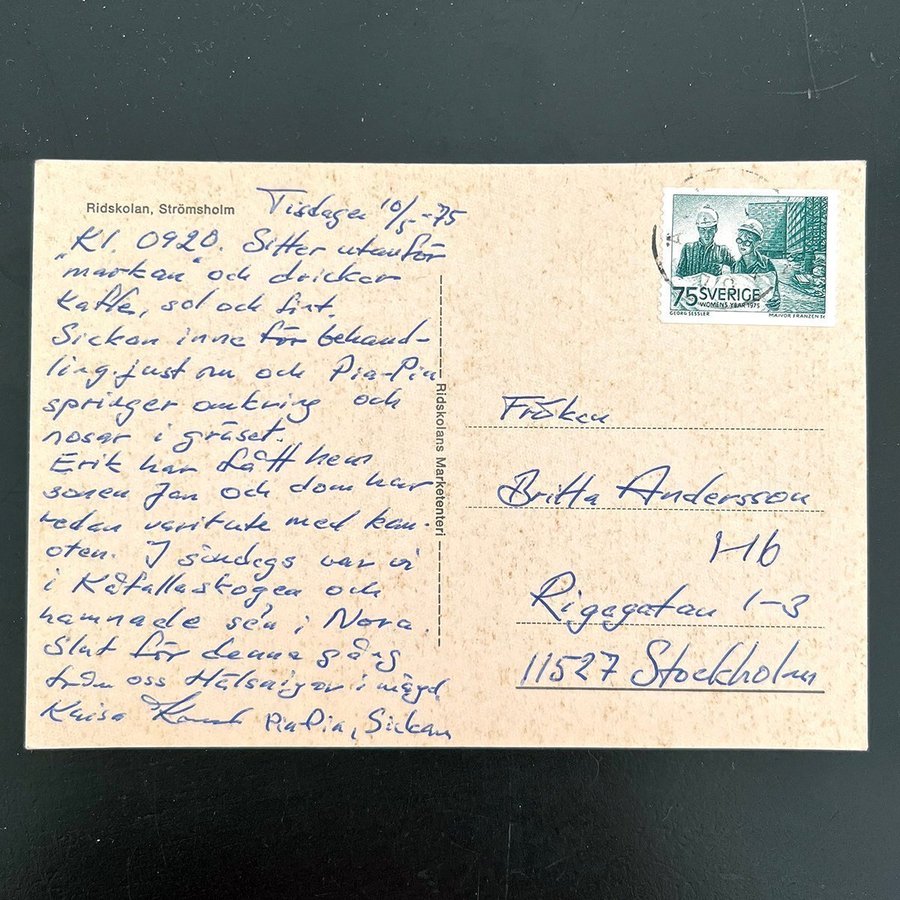 Ridskolan, Strömsholm
Tisdagen 10/5-75
Kl. 0920. Sitter utanför
"markan" och dricker
kaffe, sol och fint.
Sickan inne för behand-
ling just nu och Pia-Pia
springer omkring och
nosar i gräset.
Erik har fått hem
sonen Jan och dom har
redan varit ute med kan-
oten. I söndags var vi
i Kåfallaskogen och
hamnade sen i Nora.
Slut för denna gång
från oss Hälsningar i mängd
Kaisa PiaPia, Sickan
Ridskolans Marketenteri
75 SVERIGE
WOMENS YEAR 1975
GEORG SESSLER
MAJVOR FRANZÉN SC
Fröken
Britta Andersson
Hb
Rigagatan 1-3
11527 Stockholm